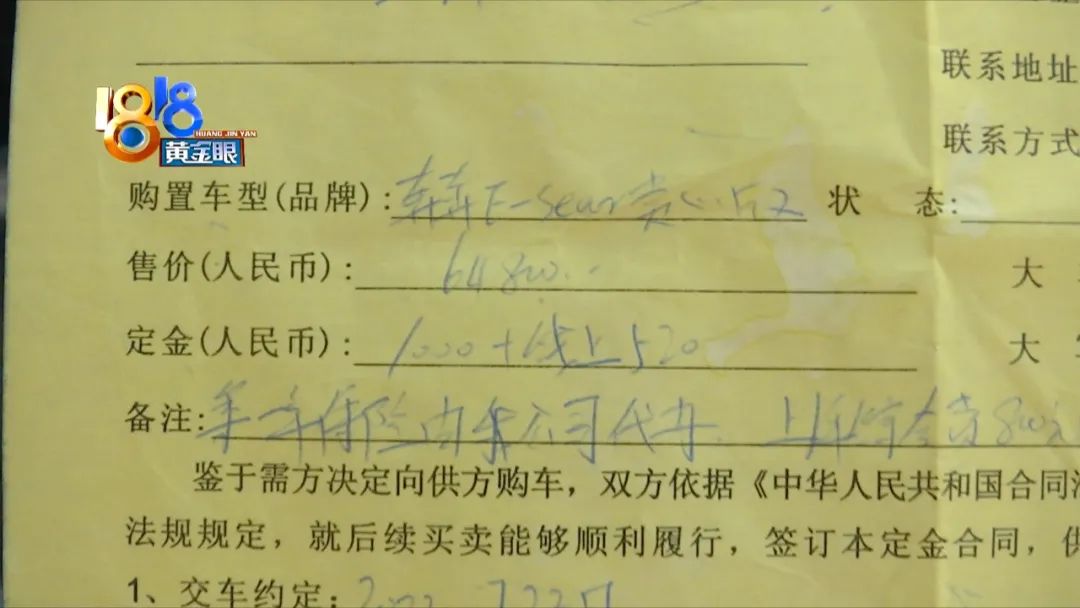 联系地址
1818
HUANG JIN YAN
黄金眼
联系方式
购置车型(品牌): 状 态:
售价(人民币): 64800 大
定金(人民币): 1000+线上520 大
备注: 保险由我公司代办
鉴于需方决定向供方购车，双方依据《中华人民共和国合同法
法规规定，就后续买卖能够顺利履行，签订本定金合同，供
1、交车约定: